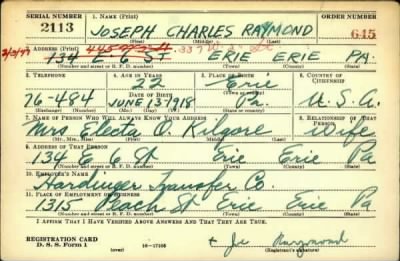 SERIAL NUMBER 1. NAME (Print) ORDER NUMBER
2113 JOSEPH CHARLES RAYMOND 645
2. ADDRESS (Print)
134 E 6 ST ERIE ERIE PA.
(Number and street or R. F. D. number) (Town) (County) (State)
3. TELEPHONE 4. AGE IN YEARS 5. PLACE OF BIRTH 6. COUNTRY OF CITIZENSHIP
22 Erie
DATE OF BIRTH (Town or county)
76-484 JUNE 13 1918 Pa. U.S.A.
7. NAME OF PERSON WHO WILL ALWAYS KNOW YOUR ADDRESS 8. RELATIONSHIP OF THAT PERSON
Mrs Electa O. Kilgore Wife
(Mr., Mrs., Miss)
9. ADDRESS OF THAT PERSON
134 E 6 St Erie Erie Pa
(Number and street or R. F. D. number) (Town) (County) (State)
10. EMPLOYER'S NAME
Hardinger Transfer Co.
11. PLACE OF EMPLOYMENT OR BUSINESS
1315 Peach St Erie Erie Pa
(Number and street or R. F. D. number) (Town) (County) (State)
I AFFIRM THAT I HAVE VERIFIED ABOVE ANSWERS AND THAT THEY ARE TRUE.
REGISTRATION CARD
D. S. S. Form 1 (over) 16-17105 Raymond
(Registrant's signature)